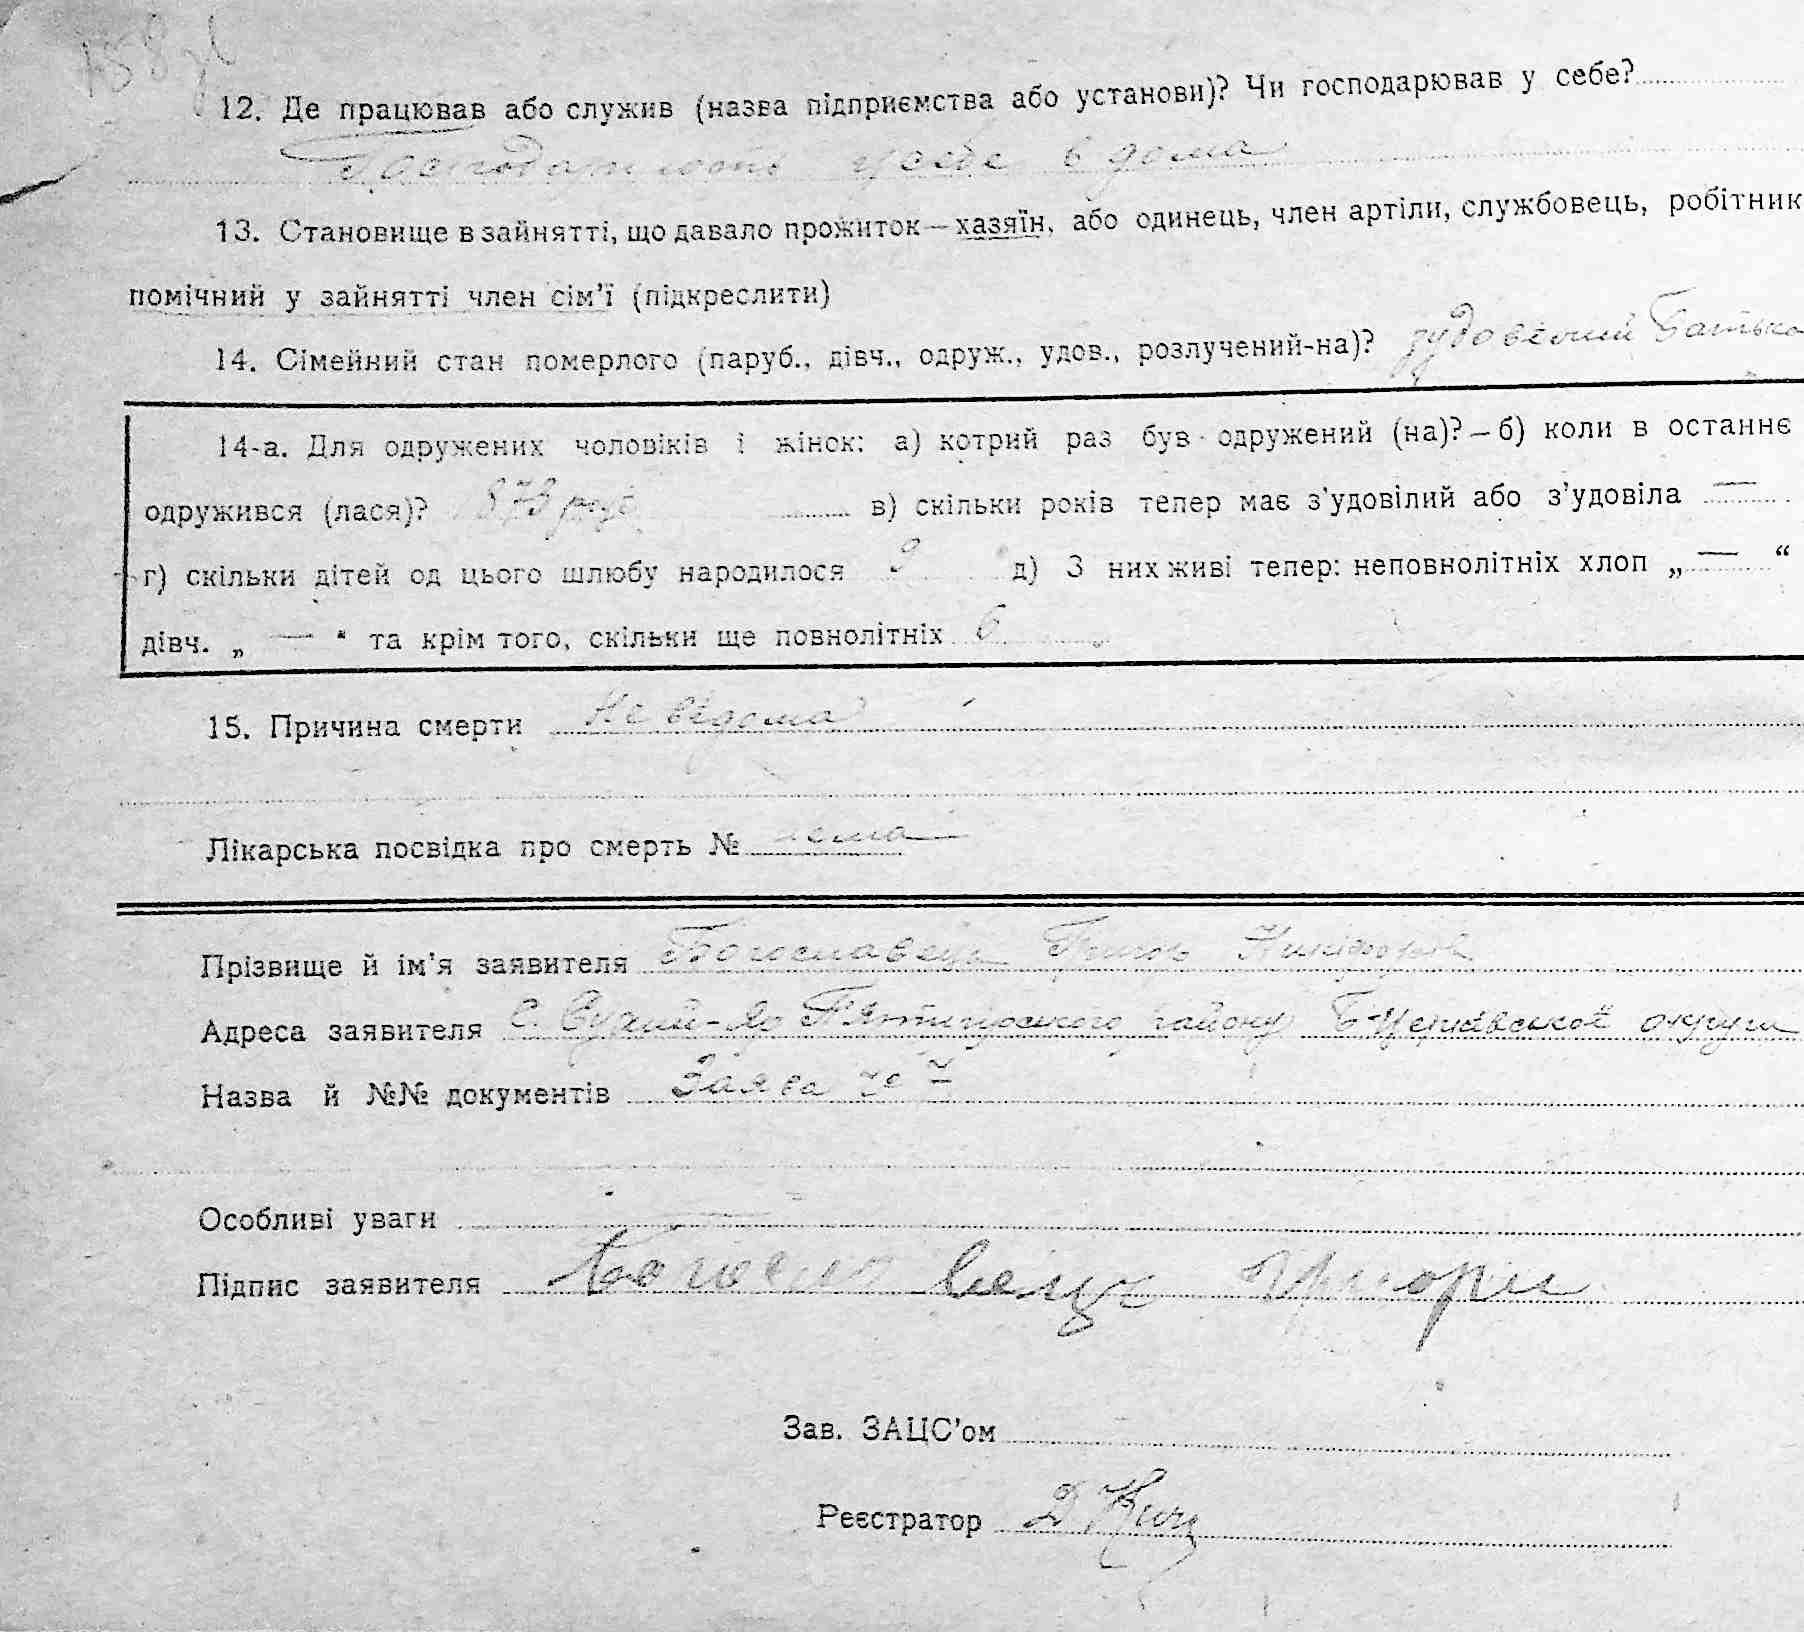 12. Де працював або служив (назва підприємства або установи)? Чи господарював у себе?
у себе в дома
13. Становище в зайнятті, що давало прожиток — хазяїн, або одинець, член артіли, службовець, робітник
помічний у зайнятті член сім'ї (підкреслити)
14. Сімейний стан померлого (паруб., дівч., одруж., удов., розлучений-на)? Батько
14-а. Для одружених чоловіків і жінок: а) котрий раз був одружений (на)? — б) коли в останнє
одружився (лася)? в) скільки років тепер має з'удовілий або з'удовіла —
г) скільки дітей од цього шлюбу народилося 9 д) З них живі тепер: неповнолітніх хлоп „ — “
дівч. „ — “ та крім того, скільки ще повнолітніх 6
15. Причина смерти не відома
Лікарська посвідка про смерть № нема
Прізвище й ім'я заявителя Богославець Григор Никіфоров
Адреса заявителя с. П'ятигорського району Б-Церківської округи
Назва й №№ документів Заява
Особливі уваги
Підпис заявителя Богославець Григорій
Зав. ЗАЦС'ом
Реєстратор